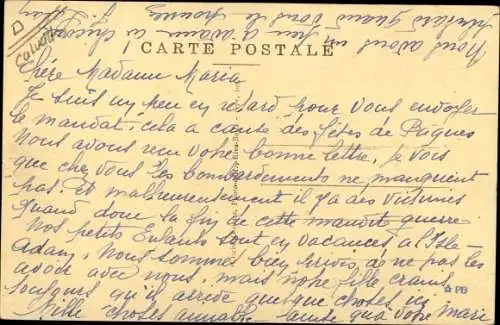 D
Calvados
CARTE POSTALE
Chère Madame Maria
Je suis un peu en retard pour vous envoyer
le mandat, cela a cause des fêtes de Pâques
Nous avons reçu votre bonne lettre, je vois
que chez vous les bombardements ne manquent
pas. Et malheureusement il y a des victimes
quand donc la fin de cette maudite guerre.
Nos petits Enfants sont en vacances a l'Isle-
Adam. Nous sommes bien privés de ne pas les
avoir avec nous, mais notre fille craint
toujours qu'il arrive quelque choses un
Mille choses aimable tante qu'a votre mari
Nous avons un
quand vous le